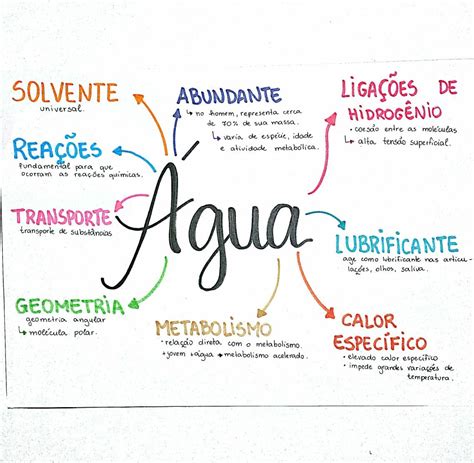 SOLVENTE
universal.
ABUNDANTE
↳ no homem, representa cerca
de 70% de sua massa.
↳ varia, de espécie, idade
e atividade metabólica.
LIGAÇÕES DE
HIDROGÊNIO
• coesão entre as moléculas
↳ alta tensão superficial.
REAÇÕES
Fundamental para que
ocorram as reações químicas.
TRANSPORTE
transporte de substâncias
Água
LUBRIFICANTE
age como lubrificante nas articu-
lações, olhos, saliva.
GEOMETRIA
geometria angular
↳ molécula polar.
METABOLISMO
• relação direta com o metabolismo.
+ jovem + água → metabolismo acelerado.
CALOR
ESPECÍFICO
• elevado calor específico
• impede grandes variações de
temperatura.